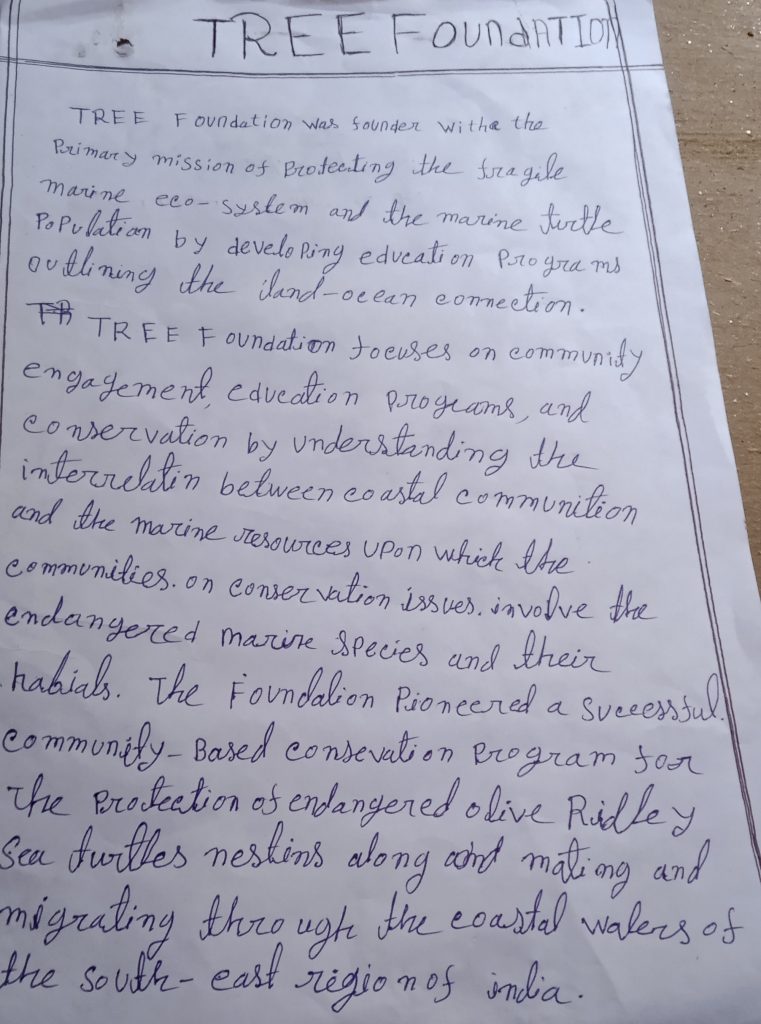 TREE FoundATION
TREE Foundation was founder witha the
Primary mission of Protecting the fragile
marine eco-system and the marine turtle
Population by developing education Programs
outlining the land-ocean connection.
TREE Foundation focuses on community
engagement, education programs, and
conservation by understanding the
interrelatin between coastal communition
and the marine resources upon which the
communities. on conservation issues. involve the
endangered marine species and their
habials. The Foundation Pioneered a Successful.
community-Based consevation Program for
The Protection of endangered olive Ridley
Sea turtles nestins along and mating and
migrating through the coastal waters of
the south-east region of india.